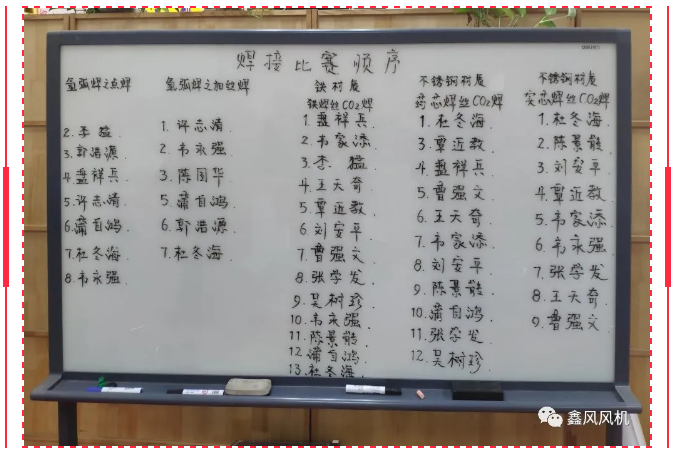 焊接比赛顺序
氩弧焊之点焊
2.李猛.
3.郭浩源.
4.盘祥兵.
5.许志清.
6.蒲自鸿.
7.杜冬海.
8.韦永强.
氩弧焊之加丝焊
1.许志清.
2.韦永强.
3.陈国华.
5.蒲自鸿.
6.郭浩源.
7.杜冬海.
铁材质
铁焊丝CO2焊
1.盘祥兵.
2.韦家添.
3.李猛.
4.王天奇.
5.覃近教.
6.刘安平.
7.曹强文.
8.张学发.
9.吴树珍.
10.韦永强.
11.陈景能.
12.蒲自鸿.
13.杜冬海.
不锈钢材质
药芯焊丝CO2焊
1.杜冬海.
3.覃近教.
4.盘祥兵.
5.曹强文.
6.王天奇.
7.韦家添.
8.刘安平.
9.陈景能.
10.蒲自鸿.
11.张学发.
12.吴树珍.
不锈钢材质
实芯焊丝CO2焊
1.杜冬海.
2.陈景能.
3.刘安平.
4.覃近教.
5.韦家添.
6.韦永强.
7.张学发.
8.王天奇.
9.曹强文.
鑫风风机